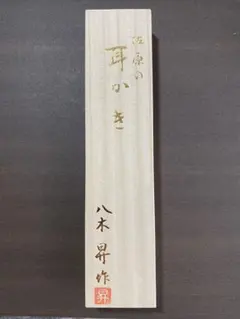 江原の
耳かき
八木昇作
昇